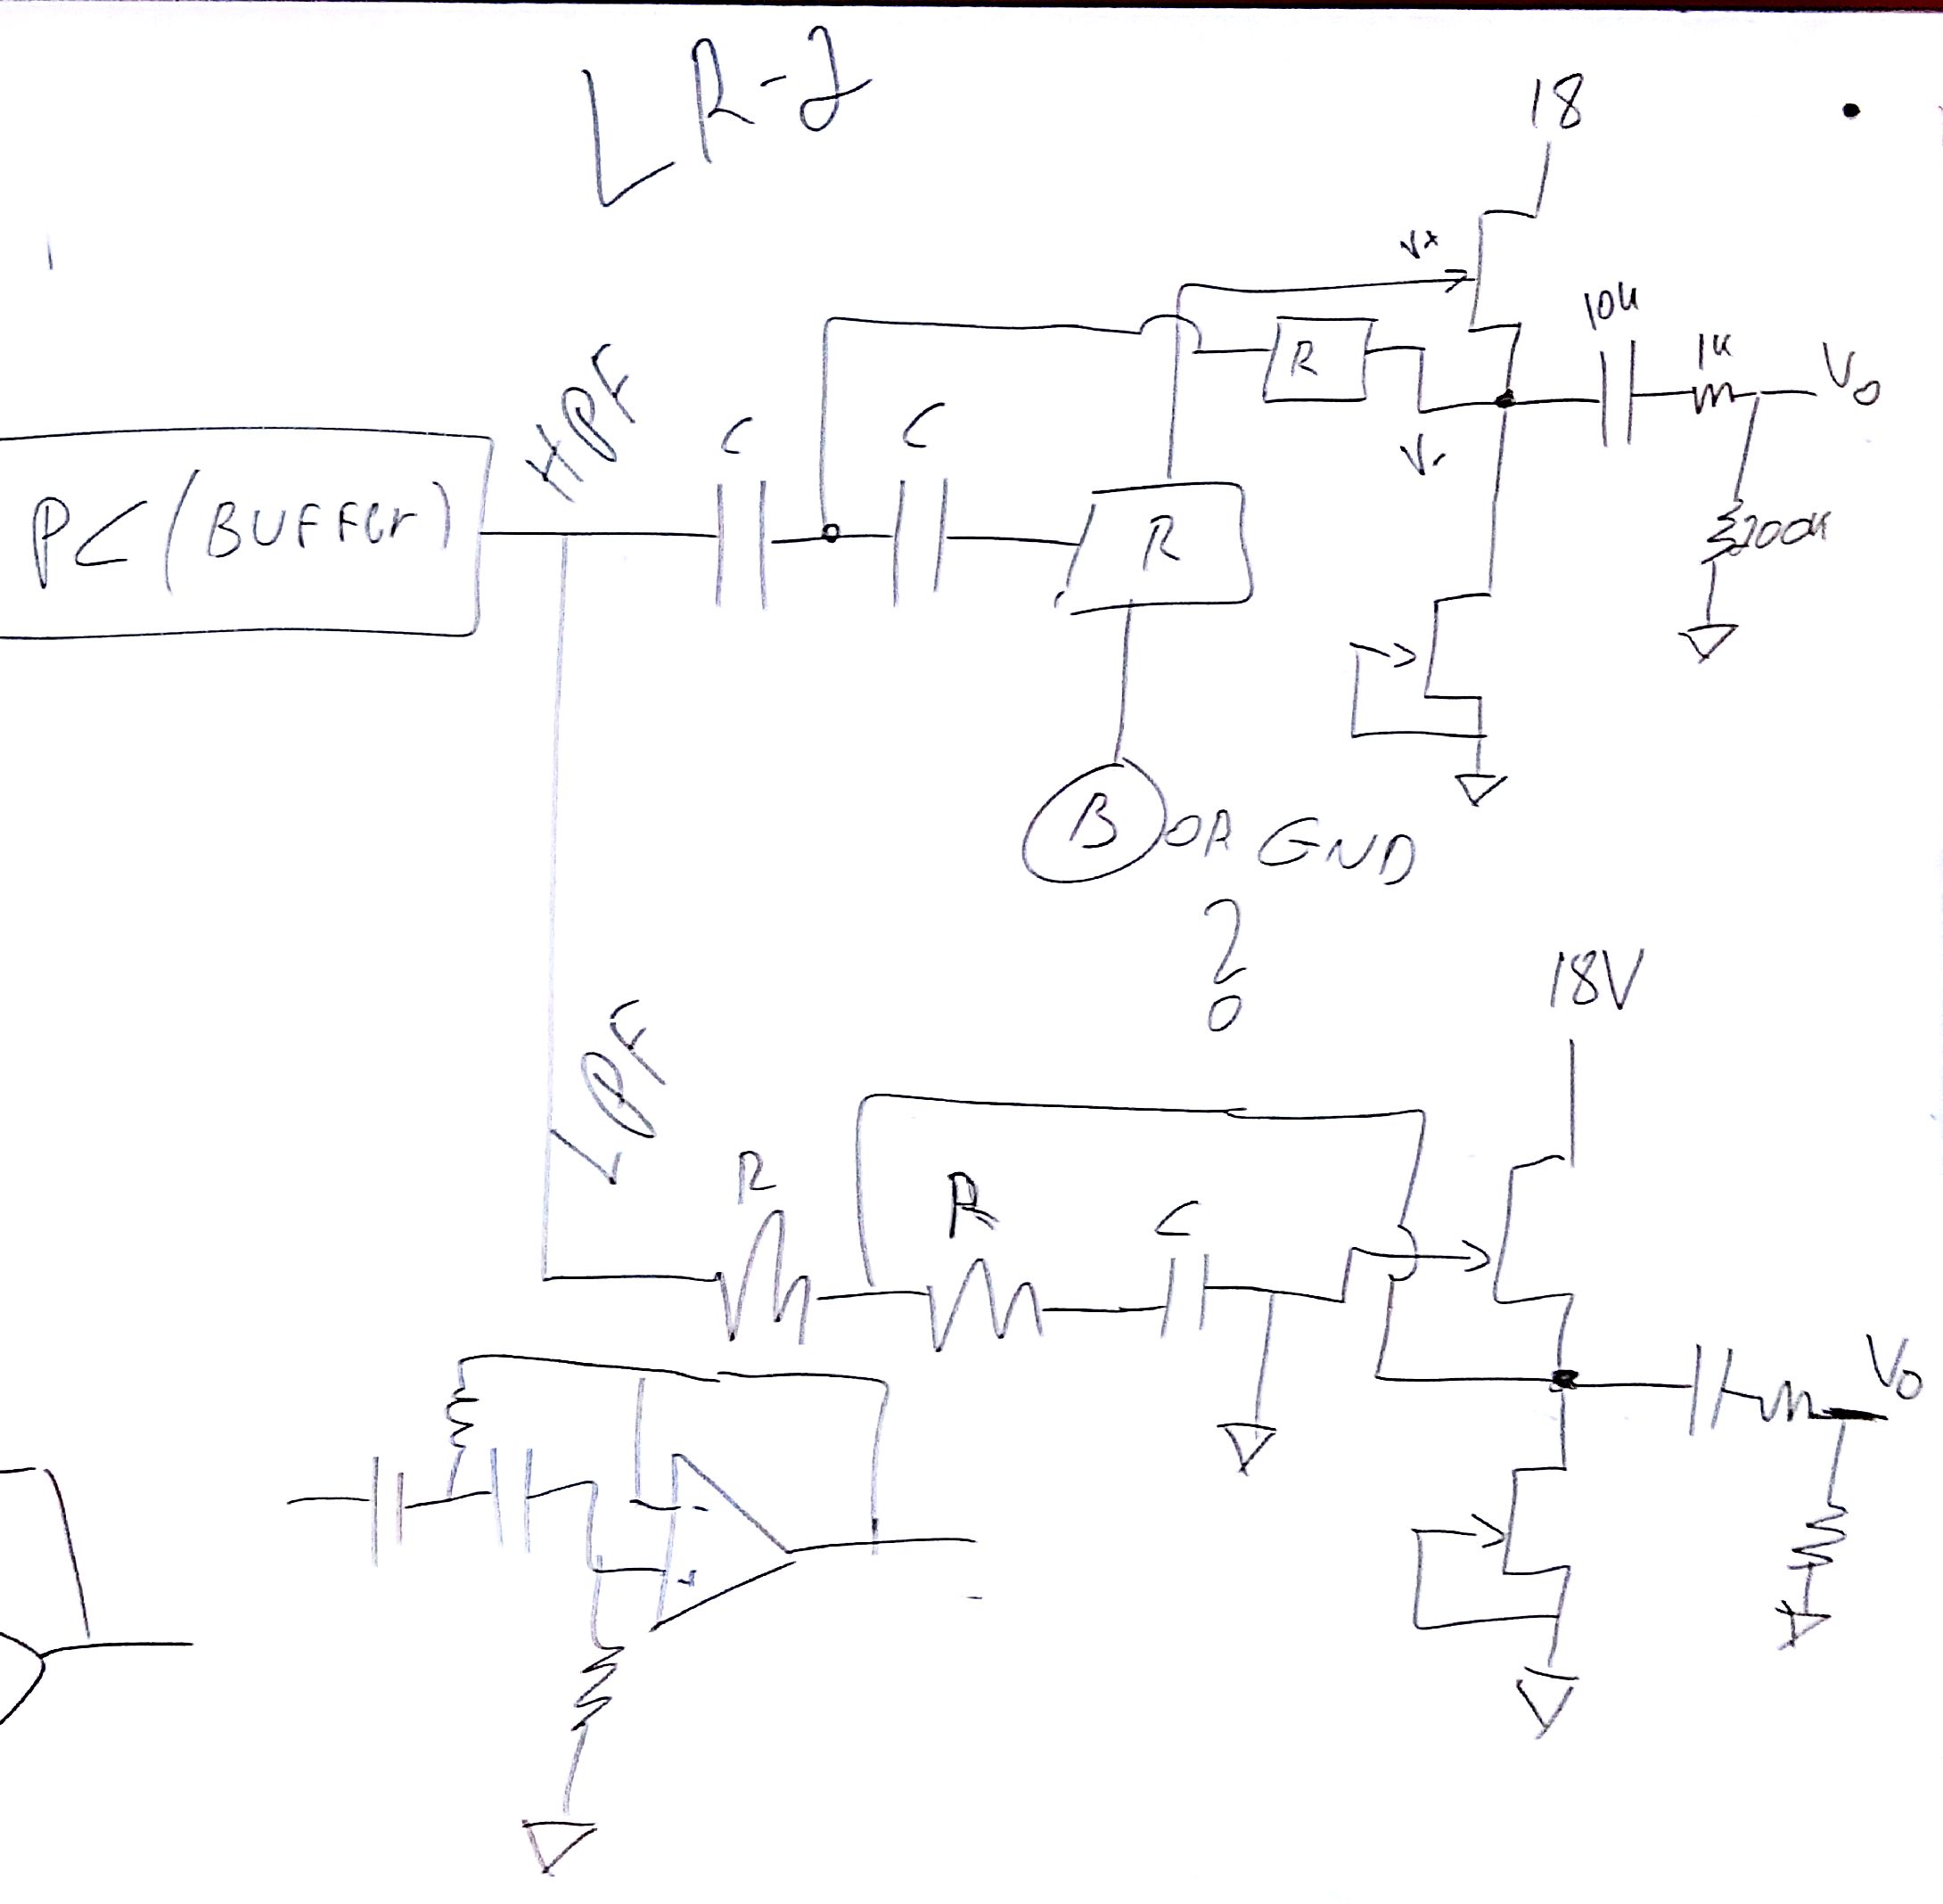 LR-2
18
V+
10u
1K
Vo
R
HPF
C
C
V-
PC (BUFFer)
R
200K
B OR GND
?
18V
LPF
R
R
C
Vo
-
+